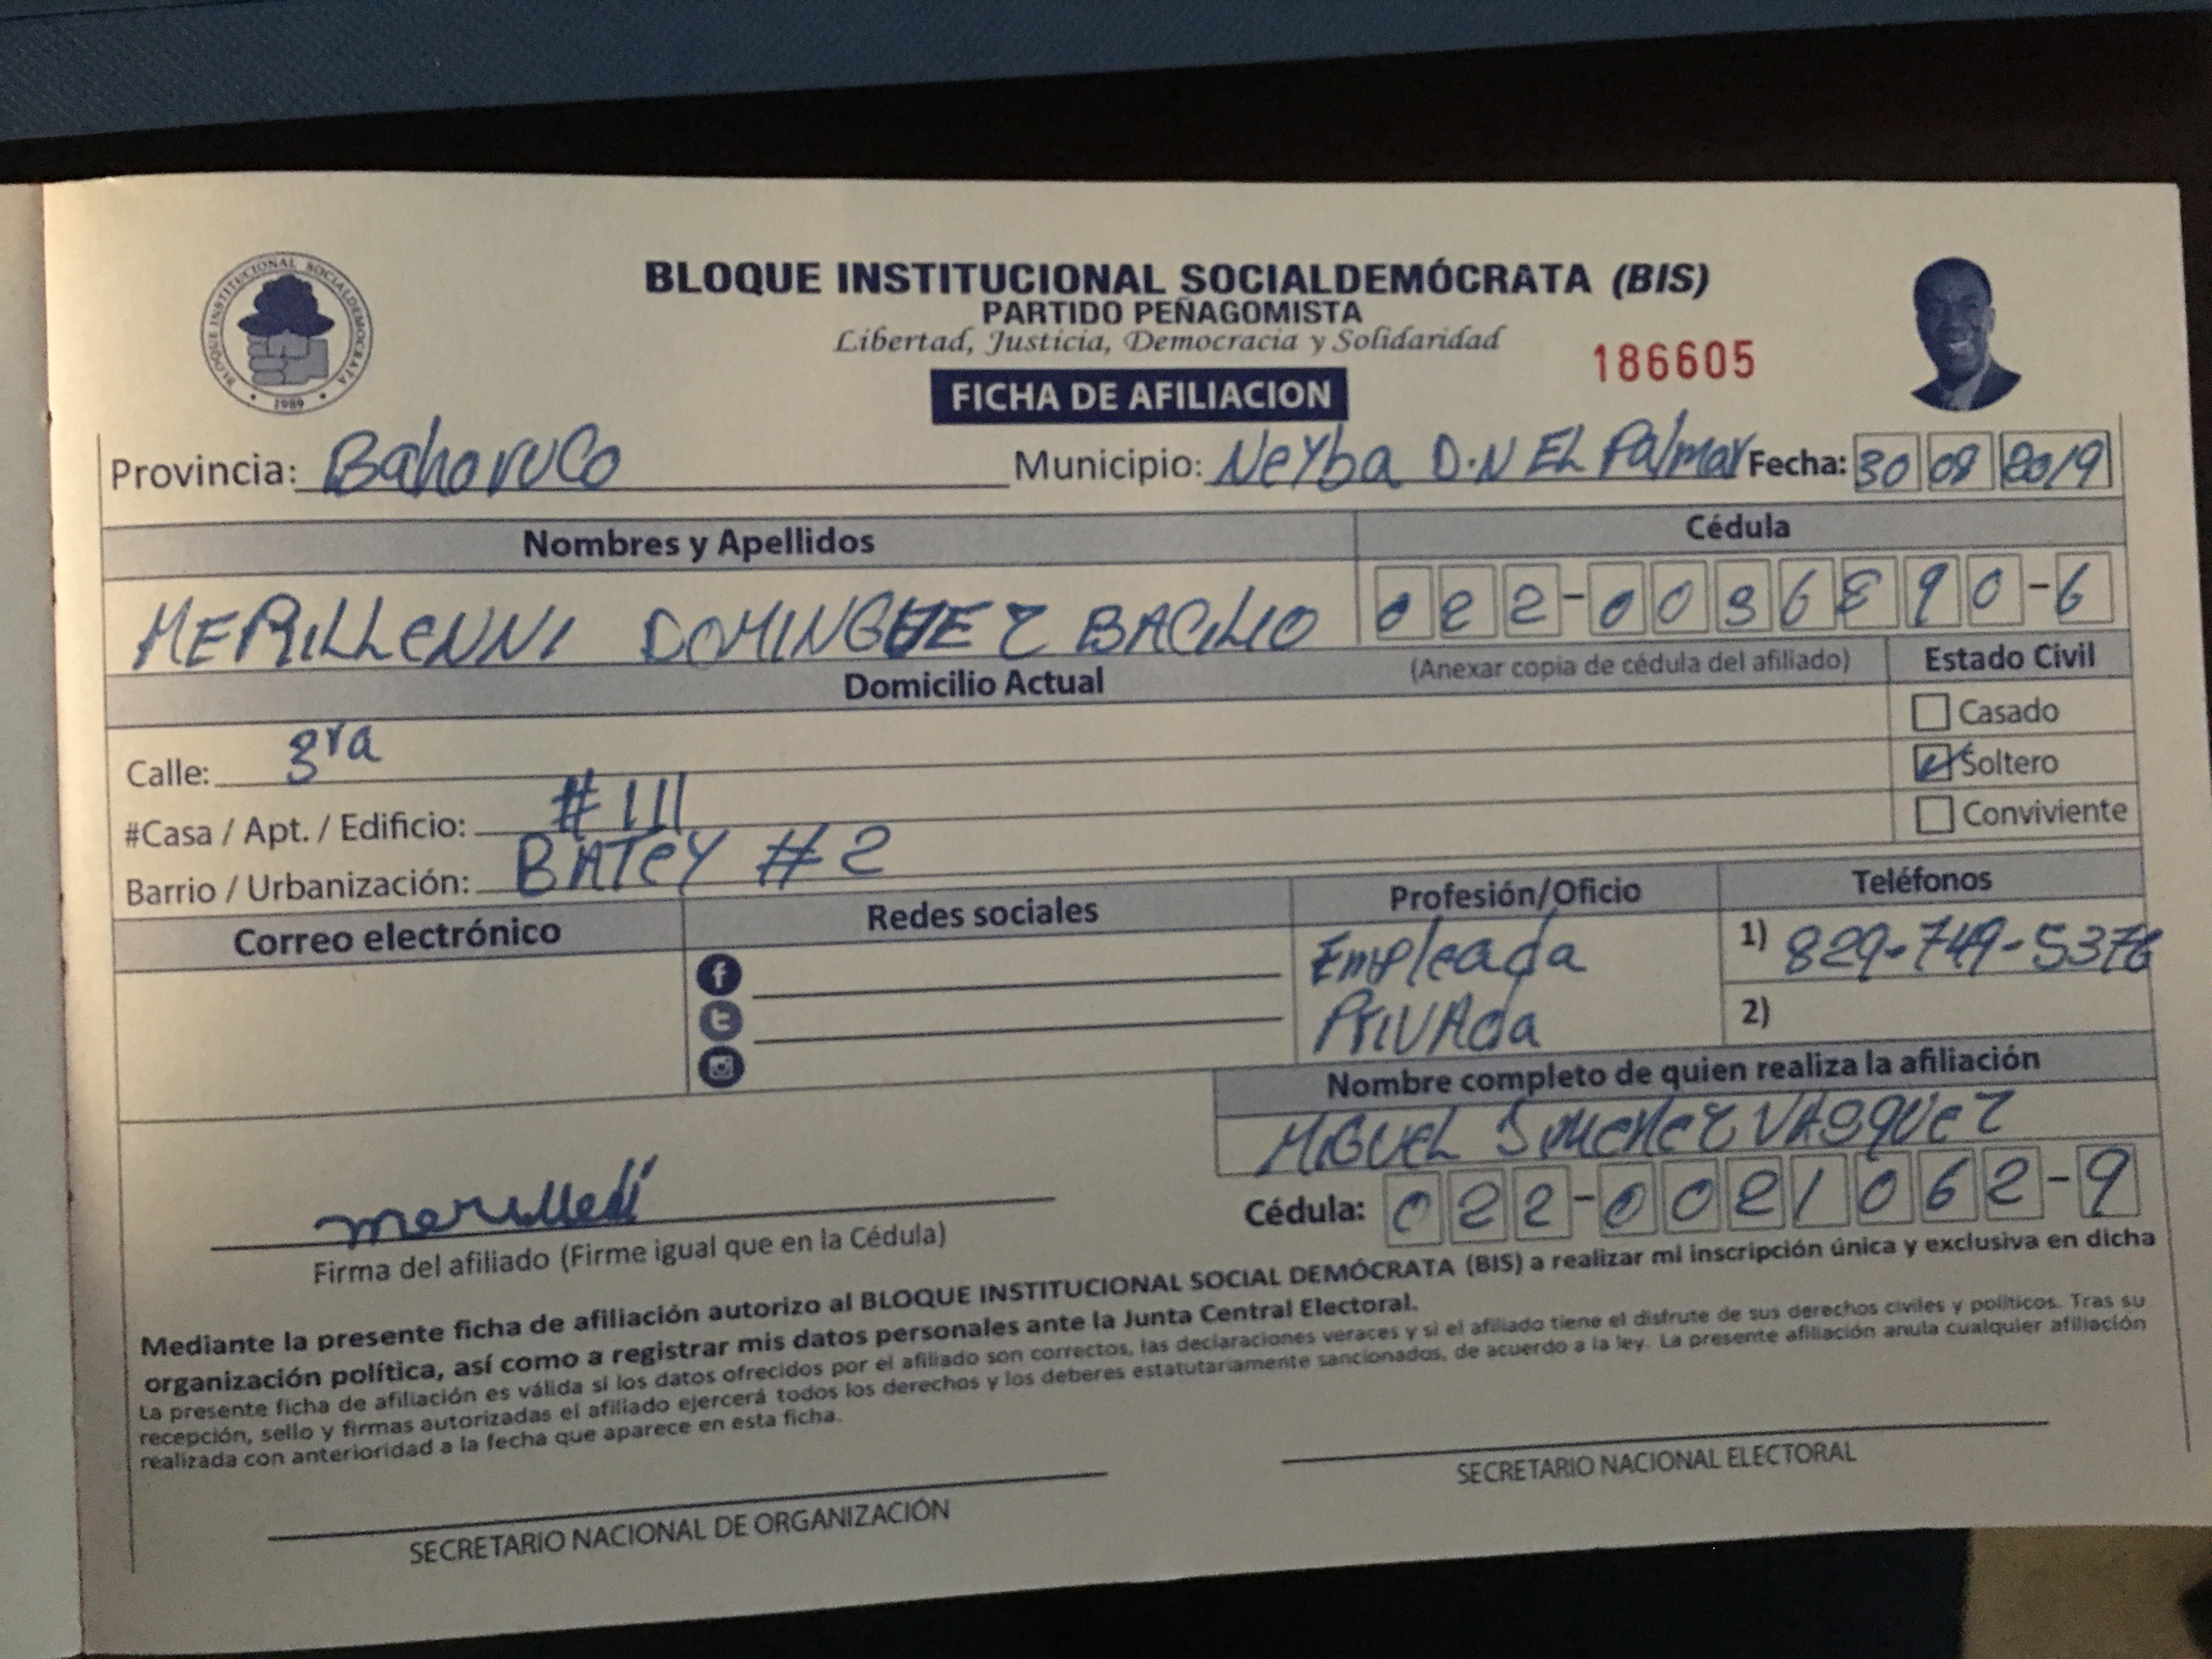 BLOQUE INSTITUCIONAL SOCIALDEMOCRATA
1989
BLOQUE INSTITUCIONAL SOCIALDEMÓCRATA (BIS)
PARTIDO PEÑAGOMISTA
Libertad, Justicia, Democracia y Solidaridad
186605
FICHA DE AFILIACION
Provincia: Bahoruco Municipio: Neyba D.N EL Palmar Fecha: 30 08 2019
Nombres y Apellidos Cédula
MERILLENNI DOMINGUEZ BACILIO 022-0036890-6
Domicilio Actual (Anexar copia de cédula del afiliado) Estado Civil
Casado
Calle: 3ra Soltero
#Casa / Apt. / Edificio: #111 Conviviente
Barrio / Urbanización: BATEY #2
Correo electrónico Redes sociales Profesión/Oficio Teléfonos
Empleada 1) 829-749-5376
PRIVAda 2)
Nombre completo de quien realiza la afiliación
MIGUEL JIMENEZ VASQUEZ
Cédula: 022-0021062-9
Firma del afiliado (Firme igual que en la Cédula)
Mediante la presente ficha de afiliación autorizo al BLOQUE INSTITUCIONAL SOCIAL DEMÓCRATA (BIS) a realizar mi inscripción única y exclusiva en dicha
organización política, así como a registrar mis datos personales ante la Junta Central Electoral.
La presente ficha de afiliación es válida si los datos ofrecidos por el afiliado son correctos, las declaraciones veraces y si el afiliado tiene el disfrute de sus derechos civiles y políticos. Tras su
recepción, sello y firmas autorizadas el afiliado ejercerá todos los derechos y los deberes estatutariamente sancionados, de acuerdo a la ley. La presente afiliación anula cualquier afiliación
realizada con anterioridad a la fecha que aparece en esta ficha.
SECRETARIO NACIONAL DE ORGANIZACIÓN SECRETARIO NACIONAL ELECTORAL